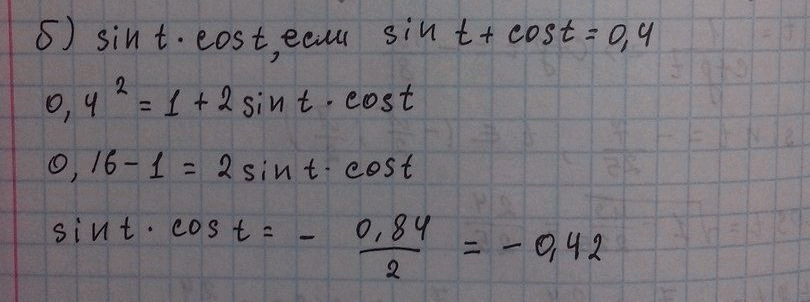 б) sin t · cos t, если sin t + cos t = 0,4
0,4² = 1 + 2 sin t · cos t
0,16 - 1 = 2 sin t · cos t
sin t · cos t = - 0,84/2 = - 0,42